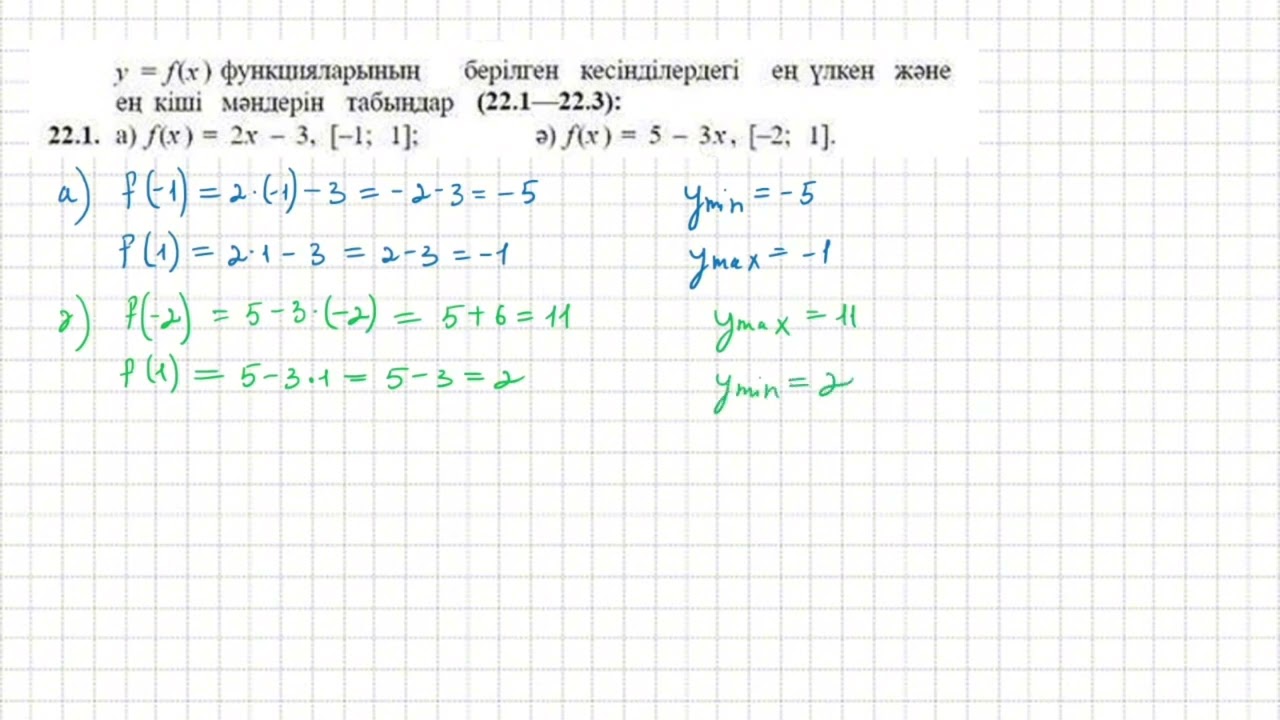 y = f(x) функцияларының берілген кесінділердегі ең үлкен және
ең кіші мәндерін табыңдар (22.1—22.3):
22.1. а) f(x) = 2x − 3, [−1; 1]; ә) f(x) = 5 − 3x, [−2; 1].
а) f(-1) = 2·(-1) - 3 = -2 - 3 = -5 ymin = -5
f(1) = 2·1 - 3 = 2 - 3 = -1 ymax = -1
ә) f(-2) = 5 - 3·(-2) = 5 + 6 = 11 ymax = 11
f(1) = 5 - 3·1 = 5 - 3 = 2 ymin = 2